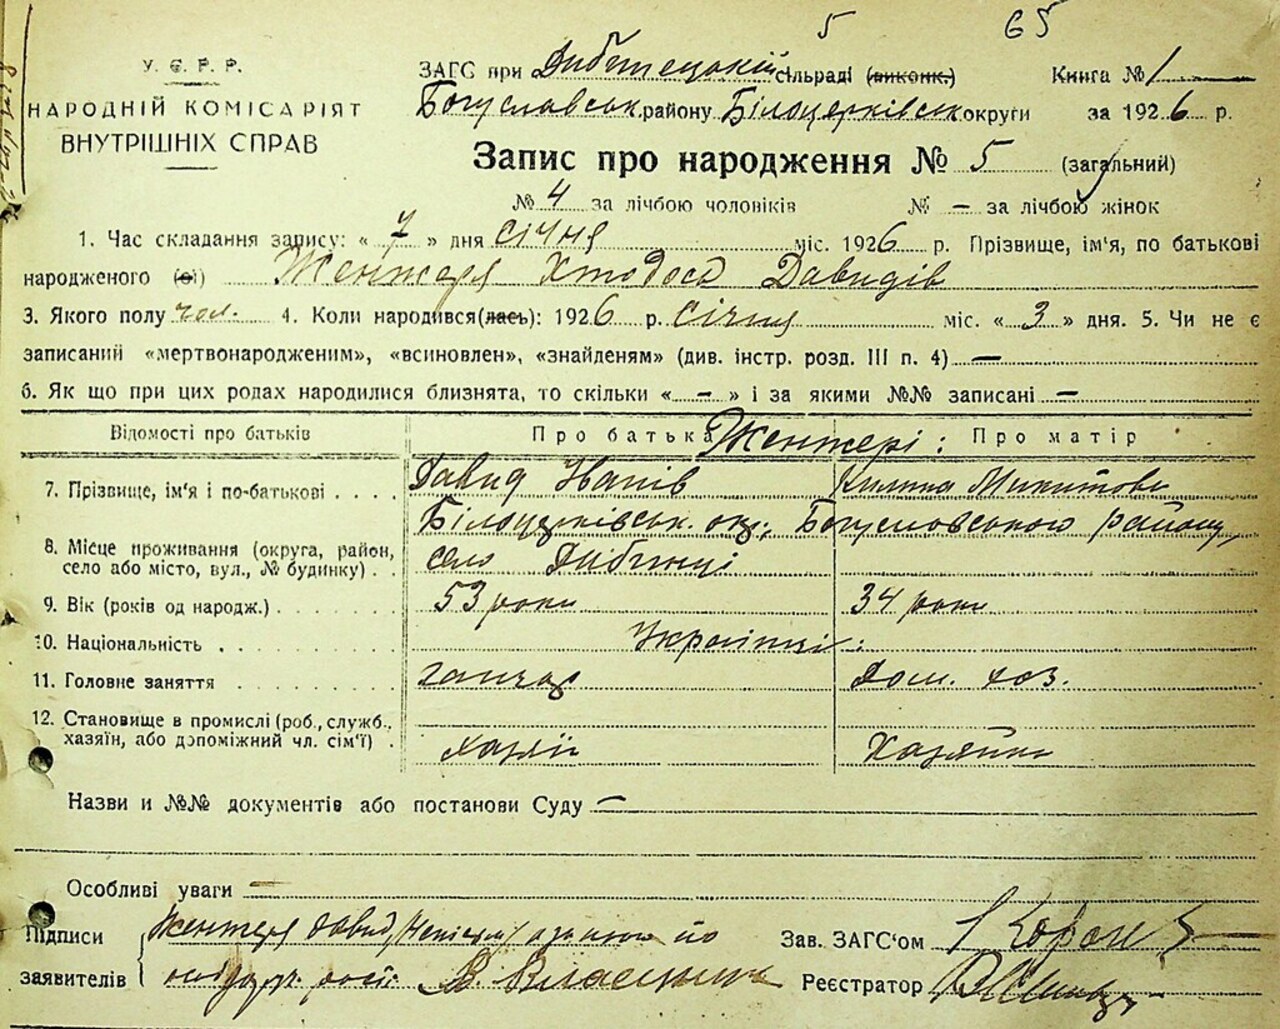 5 65
У. С. Р. Р.
НАРОДНІЙ КОМІСАРІЯТ
ВНУТРІШНІХ СПРАВ
ЗАГС при Дибенецькій сільраді (виконк.) Книга № 1
Богуславськ. району Білоцерківськ округи за 1926 р.
Запис про народження № 5 (загальний)
№ 4 за лічбою чоловіків № — за лічбою жінок
1. Час складання запису: « 7 » дня січня міс. 1926 р. Прізвище, ім'я, по батькові
народженого (ої) Женжеря Хтодосі Давидів
3. Якого полу чол. 4. Коли народився(лась): 1926 р. січня міс. « 3 » дня. 5. Чи не є
записаний «мертвонародженим», «всиновлен», «знайденям» (див. інстр. розд. III п. 4) —
6. Як що при цих родах народилися близнята, то скільки « – » і за якими №№ записані —
Відомості про батьків Про батька Женжері: Про матір
7. Прізвище, ім'я і по-батькові Давид Іванів Килина Микитова
8. Місце проживання (округа, район, село або місто, вул., № будинку) Білоцерківськ. окр., Богуславського району,
село Дибинці
9. Вік (років од народж.) 53 роки 34 роки
10. Національність Українці:
11. Головне заняття ганчар Дом. хоз.
12. Становище в промислі (роб., служб., хазяїн, або допоміжний чл. сім'ї) Хазяїн Хазяйка
Назви и №№ документів або постанови Суду —
Особливі уваги —
Підписи заявителів Женжеря Давид, /Неписьм/ а за його
Зав. ЗАГС'ом
В. Власенко
Реєстратор